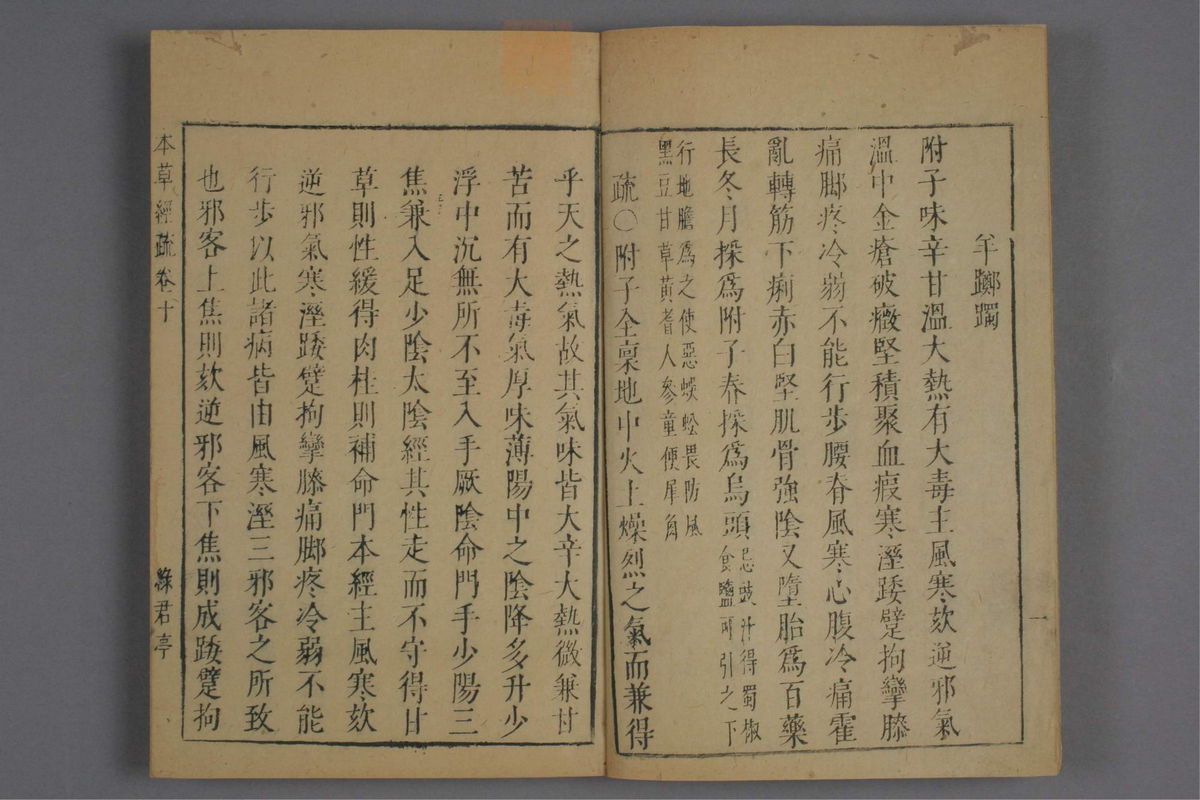 羊躑躅
附子味辛甘溫大熱有大毒主風寒欬逆邪氣
溫中金瘡破癥堅積聚血瘕寒溼踒躄拘攣膝
痛脚疼冷弱不能行步腰脊風寒心腹冷痛霍
亂轉筋下痢赤白堅肌骨強陰又墮胎爲百藥
長冬月採爲附子春採爲烏頭
忌豉汁得蜀椒
食鹽可引之下
行地膽爲之使惡蜈蚣畏防風
黑豆甘草黃耆人參童便犀角
疏〇附子全稟地中火土燥烈之氣而兼得
乎天之熱氣故其氣味皆大辛大熱微兼甘
苦而有大毒氣厚味薄陽中之陰降多升少
浮中沉無所不至入手厥陰命門手少陽三
焦兼入足少陰太陰經其性走而不守得甘
草則性緩得肉桂則補命門本經主風寒欬
逆邪氣寒溼踒躄拘攣膝痛脚疼冷弱不能
行步以此諸病皆由風寒溼三邪客之所致
也邪客上焦則欬逆邪客下焦則成踒躄拘
本草經疏卷十
綠君亭
一